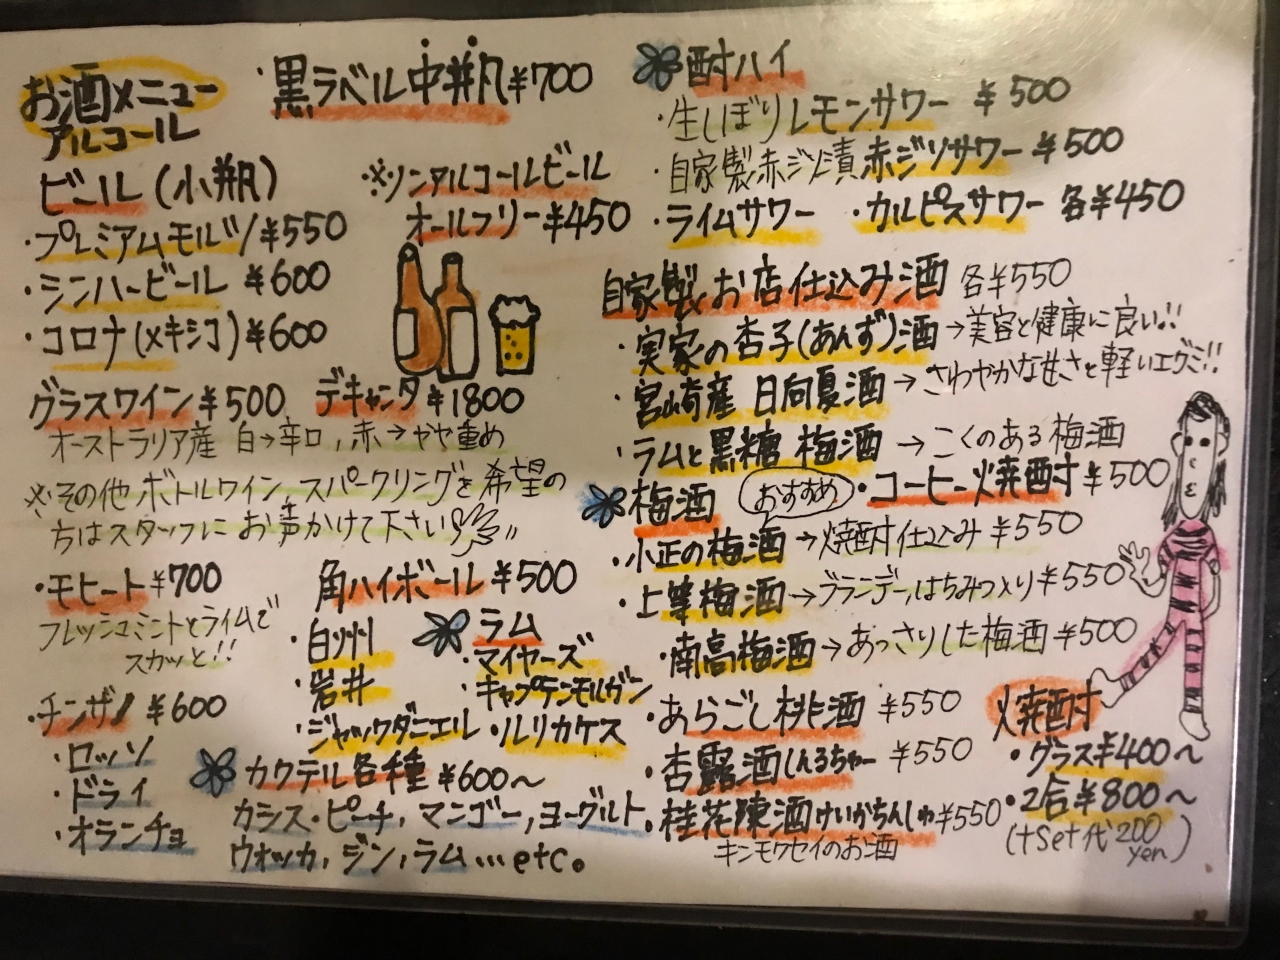 お酒メニュー
アルコール
・黒ラベル中瓶¥700
ビール(小瓶)
・プレミアムモルツ/¥550
・シンハービール ¥600
・コロナ(メキシコ)¥600
※ノンアルコールビール
オールフリー¥450
グラスワイン¥500 デキャンタ¥1800
オーストラリア産 白→辛口,赤→やや重め
※その他ボトルワイン,スパークリングを希望の
方はスタッフにお声かけて下さい
・モヒート¥700
フレッシュミントとライムで
スカッと!!
・チンザノ ¥600
・ロッソ
・ドライ
・オランチョ
角ハイボール¥500
・白州
・岩井
・ジャックダニエル
ラム
・マイヤーズ
・キャプテンモルガン
・ルリカケス
カクテル各種 ¥600〜
カシス・ピーチ,マンゴー,ヨーグルト,
ウオッカ,ジン,ラム…etc。
酎ハイ
・生しぼりレモンサワー ¥500
・自家製赤ジソ漬赤ジソサワー¥500
・ライムサワー ・カルピスサワー 各¥450
自家製お店仕込み酒 各¥550
・実家の杏子(あんず)酒→美容と健康に良い!!
・宮崎産 日向夏酒→さわやかな甘さと軽いエグミ!!
・ラムと黒糖 梅酒→こくのある梅酒
梅酒 おすすめ ・コーヒー焼酎¥500
・小正の梅酒→焼酎仕込み¥550
・上等梅酒→ブランデー,はちみつ入り¥550
・南高梅酒→あっさりした梅酒¥500
・あらごし桃酒 ¥550
・杏露酒しんるちゅー ¥550
・桂花陳酒けいかちんしゅ¥550
キンモクセイのお酒
焼酎
・グラス¥400〜
・2合¥800〜
(+Set代200
yen)